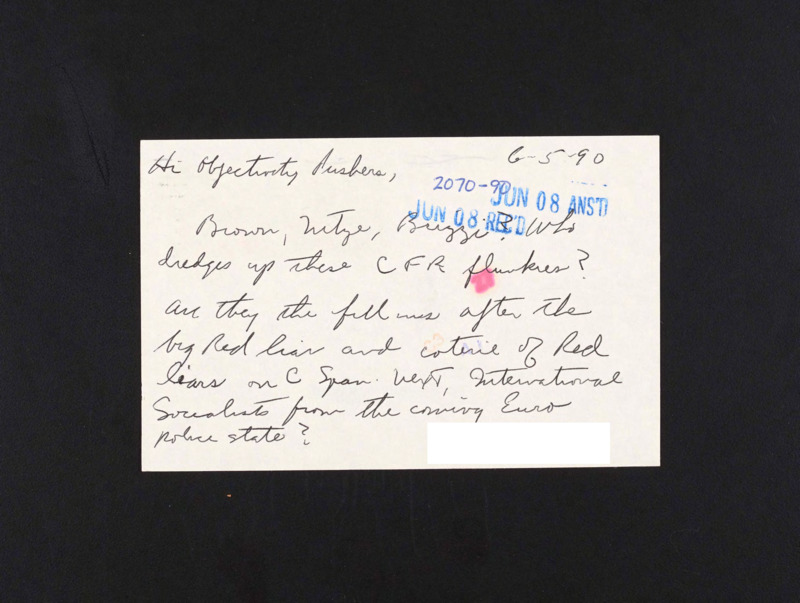 Hi Objectivity Pushers,
6-5-90
2070-90
JUN 08 ANS'D
JUN 08 REC'D
Brown, Nitze, Brizzi? Who
dredges up these CFR flunkies?
Are they the fill ins after the
big Red liar and coterie of Red
liars on C Span. Next, International
Socialists from the coming Euro
police state?